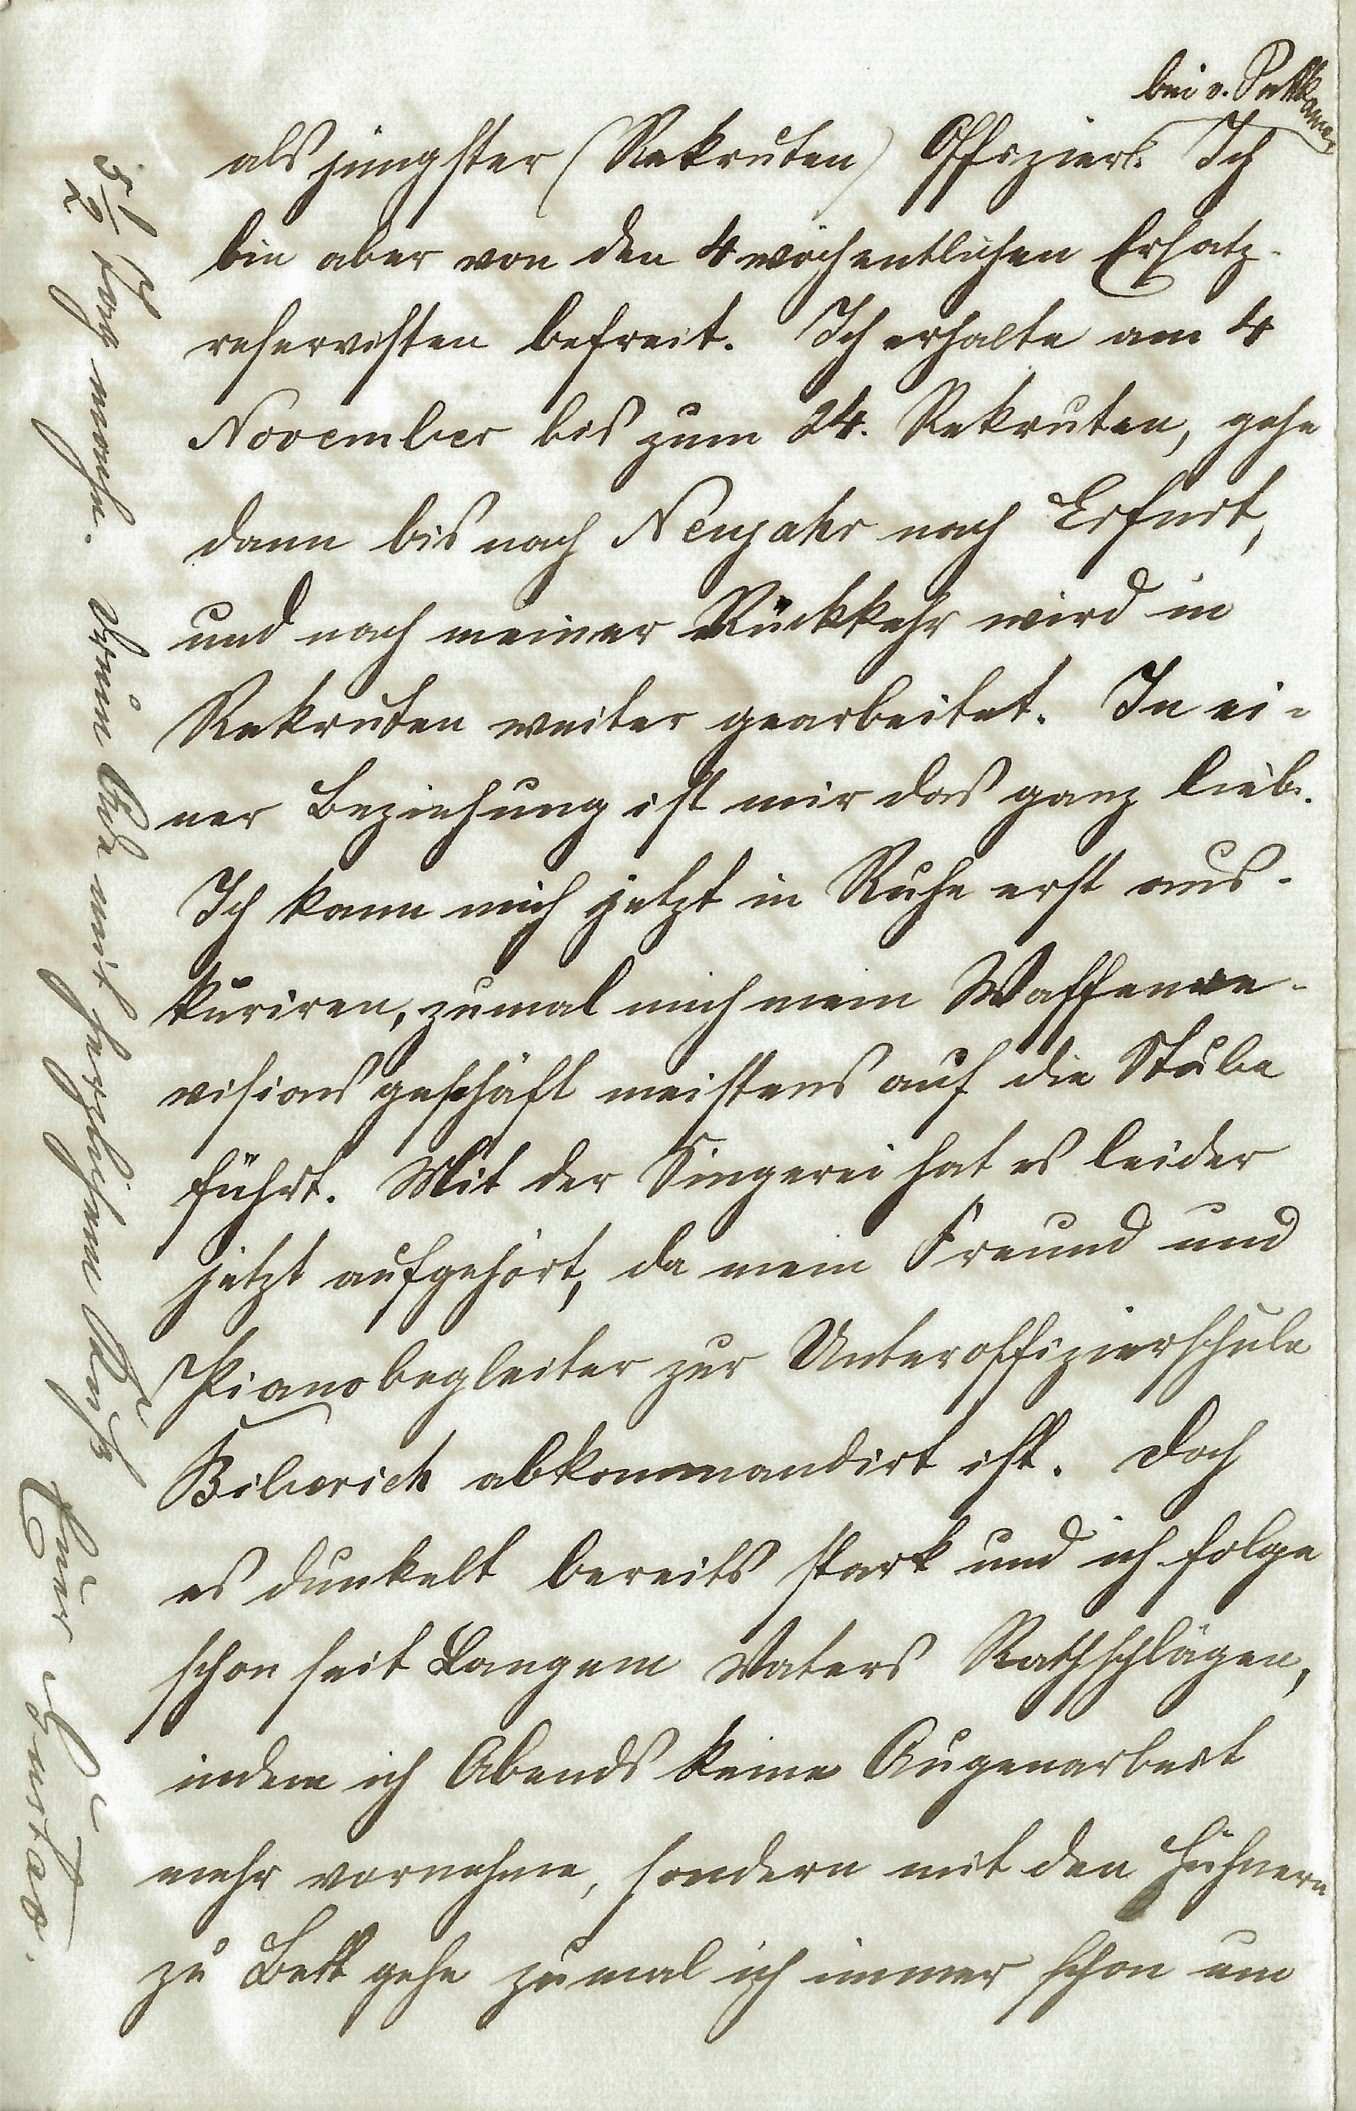 bei v. Puttkamer
als jüngster (Rekruten) Offizier. Ich
bin aber von den 4 wöchentlichen Ersatz-
reservisten befreit. Ich erhalte am 4
November bis zum 24. Rekruten, gehe
dann bis nach Neujahr nach Erfurt,
und nach meiner Rückkehr wird in
Rekruten weiter gearbeitet. In ei-
ner Beziehung ist mir das ganz lieb.
Ich kann mich jetzt in Ruhe erst aus-
kuriren, zumal mich mein Waffenre-
visionsgeschäft meistens auf die Stube
führt. Mit der Singerei hat es leider
jetzt aufgehört, da mein Freund und
Pianobegleiter zur Unteroffizierschule
Biberich abkommandirt ist. Doch
es dunkelt bereits stark und ich folge
schon seit Langem Vaters Rathschlägen,
indem ich Abends keine Augenarbeit
mehr vornehme, sondern mit den Hühnern
zu Bett gehe zumal ich immer schon um
5 1/2 Tag mache. Drum Ade mit herzlichem Kuß
Euer Gustav.